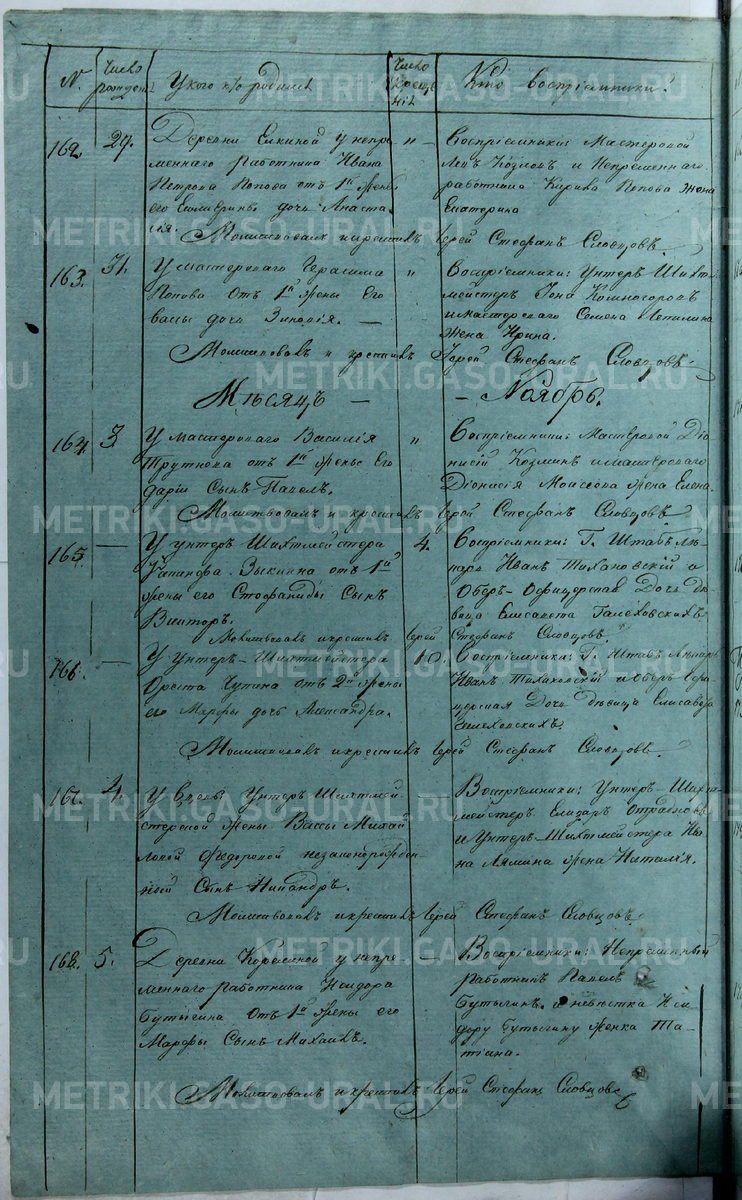 N. Число рожден. У кого кто родился Число крещенія Кто воспріемники?
162. 29. Деревни Елкиной у непре-
меннаго работника Ивана
Петрова Попова отъ 1й жены
его Екатерины дочь Анаста-
сія.
" Воспріемники: Мастеровой
Левъ Козловъ и Непременнаго
работника Кирила Попова жена
Екатерина
Молитвовалъ и крестилъ Іерей Стефанъ Словцовъ.
163. 31. У мастероваго Герасима
Попова отъ 1й жены его
Вассы дочь Зиновія. —
" Воспріемники: Унтеръ Шихт-
мейстеръ Іона
и мастероваго Семена
жена Ирина.
Молитвовалъ и крестилъ Іерей Стефанъ Словцовъ
Мѣсяцъ — - Ноябрь.
164. 3 У мастероваго Василія
Трутнева отъ 1й жены его
Даріи Сынъ Павелъ.
" Воспріемники: Мастеровой Діо-
нисій Козминъ и мастероваго
Діонисія Моисеева жена Елена.
Молитвовалъ и крестилъ Іерей Стефанъ Словцовъ
165. — У унтеръ Шихтмейстера
Зыкина отъ 1й
жены его Стефаниды Сынъ
Викторъ.
4. Воспріемники: Г. Штабъ Лѣ-
карь Иванъ Тихановскій и
Оберъ-Офицерская Дочь дѣ-
вица Елисавета
Молитвовалъ и крестилъ Іерей Стефанъ Словцовъ.
166. — У Унтеръ-Шихтмейстера
Ореста Чупина отъ 2й жены
его Марфы дочь Александра.
10. Воспріемники: Г. Штабъ Лѣкарь
Иванъ Тихановскій и Оберъ Офи-
церская Дочь Дѣвица Елисавета
Молитвовалъ и крестилъ Іерей Стефанъ Словцовъ.
167. 4. У Вдовы Унтеръ Шихтмей-
стерской жены Вассы Михай-
ловой Федоровой незаконорожден-
ный Сынъ Никандръ.
Воспріемники: Унтеръ-Шихт-
мейстеръ Елизаръ
и Унтеръ-Шихтмейстера Ива-
на Лямина жена Наталія.
Молитвовалъ и крестилъ Іерей Стефанъ Словцовъ
168. 5. Деревни у непре-
меннаго работника Исидора
Бутыгина отъ 1й жены его
Марфы Сынъ Михаилъ.
— Воспріемники: Непременный
работникъ Павелъ
Бутыгинъ и невестка Иси-
дору Бутыгину женка Та-
тіана.
Молитвовалъ и крестилъ Іерей Стефанъ Словцовъ
METRIKI.GASO-URAL.RU